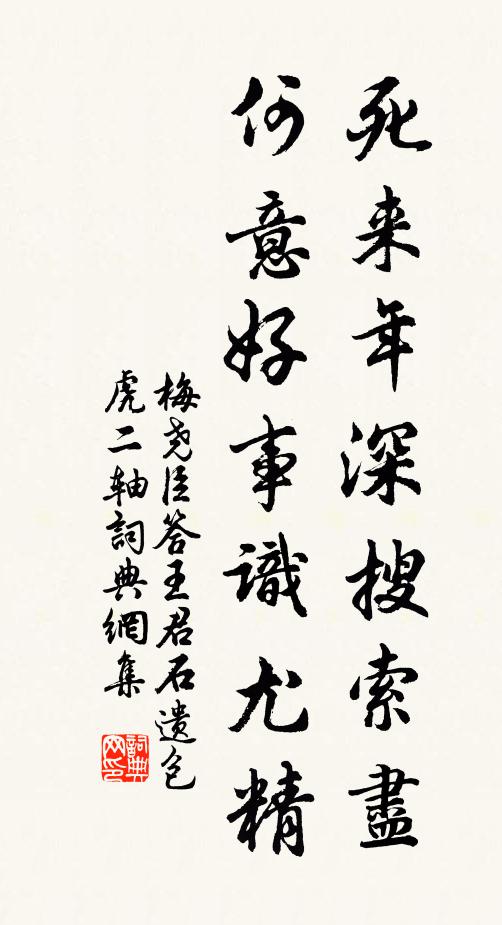 死来年深搜索盡
何意好事識尤精
梅尧臣答王君石遗包
虎二轴詞典網集
詞典网印